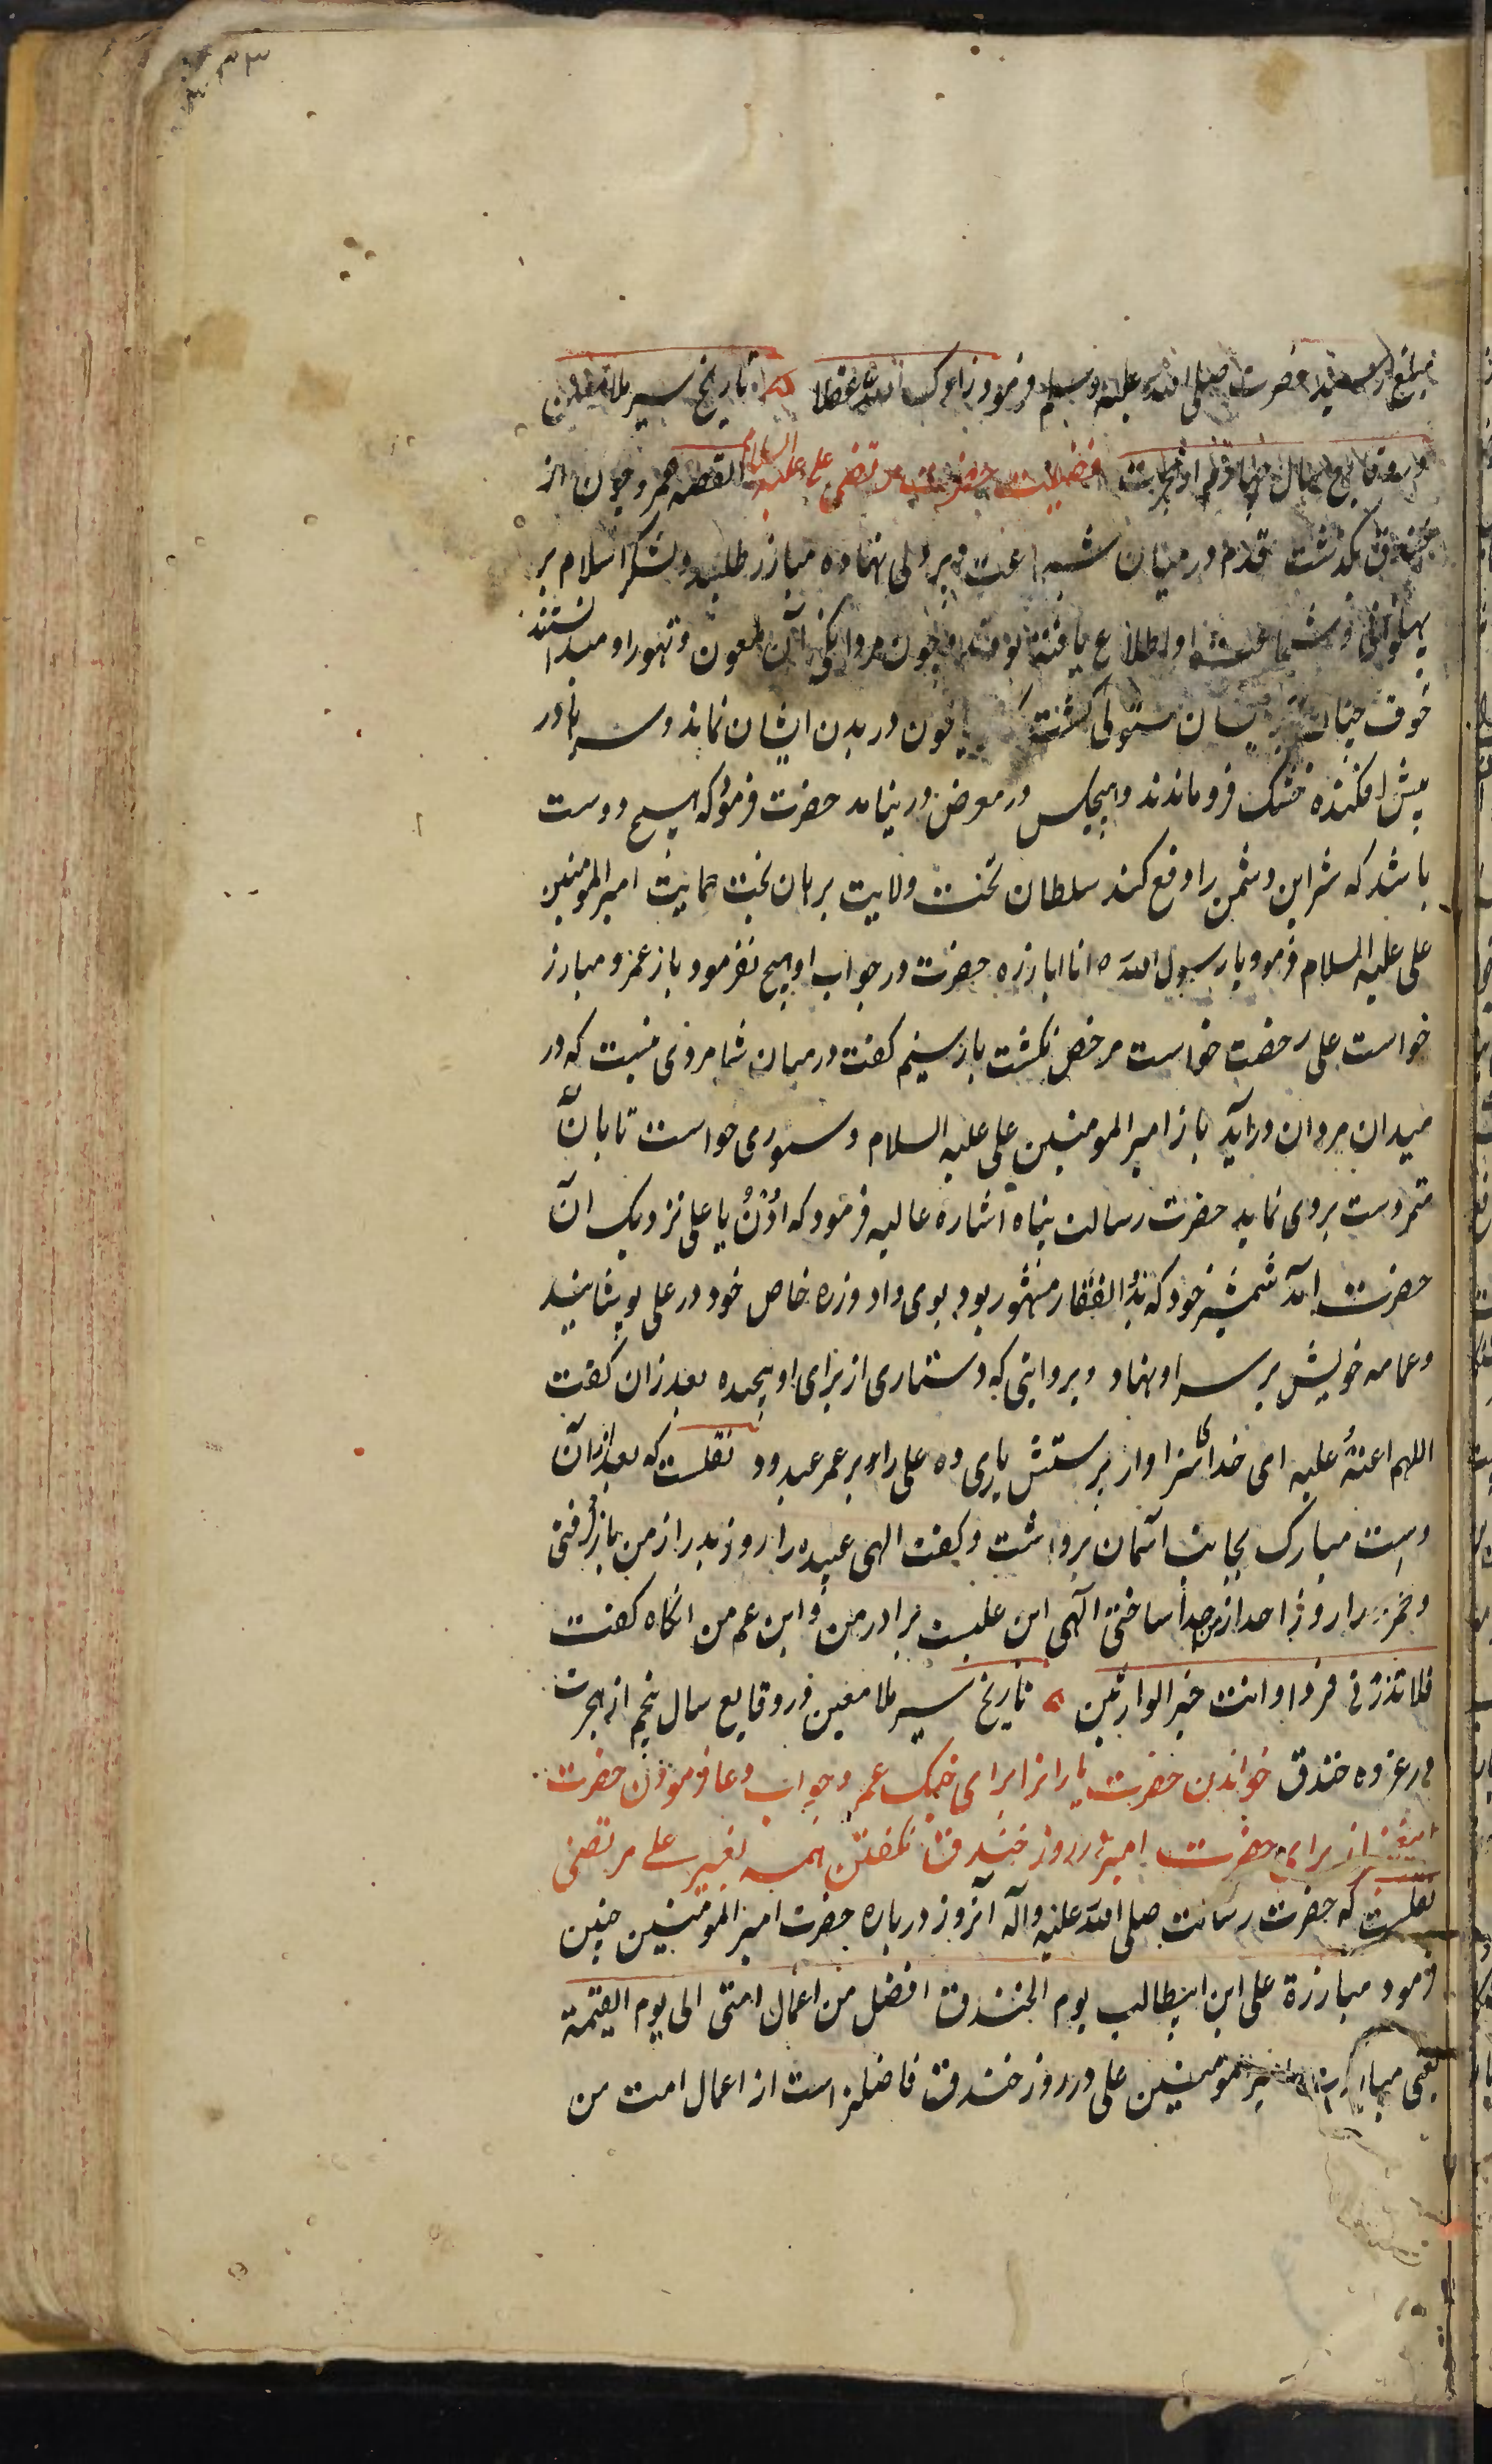 ۳۳
حضرت صلی الله علیه وسلم فرمود زادک الله تاریخ سیر ملا معین
در وقایع سال چهارم از هجرت فضیلت حضرت مرتضی علی علیه السلام القصه عمرو چون از
خندق بگذشت قدم در میدان شجاعت و پردلی نهاده مبارز طلبید و لشکر اسلام بر
پهلوانی و شجاعت او اطلاع یافته بودند و چون مردانگی آن ملعون و تهور او میدانستند
خوف چنان بر ایشان مستولی گشت که خون در بدن ایشان نماند و سرها در
پیش افکنده خشک فرو ماندند و هیچکس در معرض در نیامد حضرت فرمود که هیچ دوست
باشد که شر این دشمن را دفع کند سلطان تخت ولایت برهان تخت حمایت امیر المومنین
علی علیه السلام فرمود یا رسول الله انا ابارزه حضرت در جواب او هیچ نفرمود باز عمرو مبارز
خواست علی رخصت خواست مرخص نگشت بار سیم گفت در میان شما مردی نیست که در
میدان مردان در آید باز امیر المومنین علی علیه السلام دستوری خواست تا بان
متمر دست بروی نماید حضرت رسالت پناه اشاره عالیه فرمود که اُدْنُ یا علی نزدیک آن
حضرت آمد شمشیر خود که بذو الفقار مشهور بود بوی داد و زره خاص خود در علی پوشانید
و عمامه خویش بر سر او نهاد و بروایتی که دستاری از برای او پیچیده بعد زان گفت
اللهم اعنهُ علیه ای خدای سزاوار پرستش یاری ده علی را بر عمر عبدود نقلست که بعد از آن
دست مبارک بجانب آسمان برداشت و گفت الهی عبیده را روز بدر از من باز گرفتی
و حمزه را روز احد از من جدا ساختی الهی این علیست برادر من و ابن عم من آنگاه گفت
فلا تذرنی فردا و انت خیر الوارثین تاریخ سیر ملا معین در وقایع سال پنجم از هجرت
در غزوه خندق خواندن حضرت یارانرا برای جنک عمر و جواب و دعا فرمودن حضرت
از برای حضرت امیر در روز خندق نگفتن همه بغیر علی مرتضی
نقلست که حضرت رسالت صلی الله علیه و آله آنروز درباره حضرت امیر المومنین چنین
فرمود مبارزة علی ابن ابیطالب یوم الخندق افضل من اعمال امتی الی یوم القیمة
یعنی امیر المومنین علی در روز خندق فاضلتر است از اعمال امت من